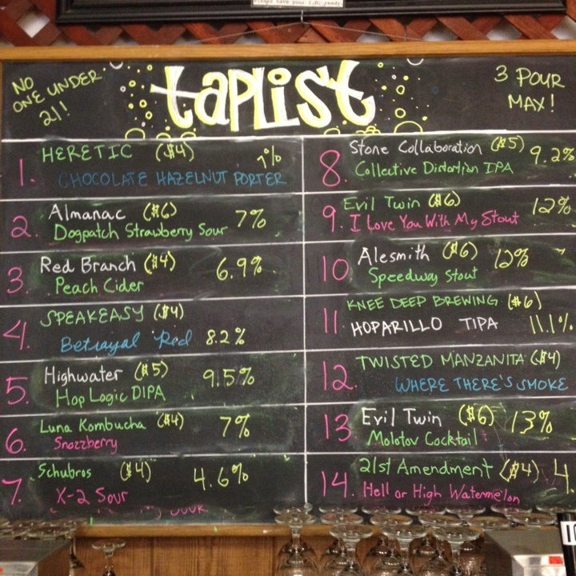 NO
ONE UNDER
21!
taplist
3 POUR
MAX!
1. HERETIC ($4) 7%
CHOCOLATE HAZELNUT PORTER
2. Almanac ($6) 7%
Dogpatch Strawberry Sour
3. Red Branch ($4) 6.9%
Peach Cider
4. SPEAKEASY ($4)
Betrayal Red 8.2%
5. Highwater ($5) 9.5%
Hop Logic DIPA
6. Luna Kombucha ($4) 7%
Snozzberry
7. Schubros ($4) 4.6%
X-2 Sour
8. Stone Collaboration ($5) 9.2%
Collective Distortion IPA
9. Evil Twin ($6) 12%
I Love You With My Stout
10 Alesmith ($6) 12%
Speedway Stout
11. KNEE DEEP BREWING ($6)
HOPARILLO TIPA 11.1%
12. TWISTED MANZANITA ($4)
WHERE THERE'S SMOKE
13 Evil Twin ($6) 13%
Molotov Cocktail
14. 21st Amendment ($4) 4.
Hell or High Watermelon